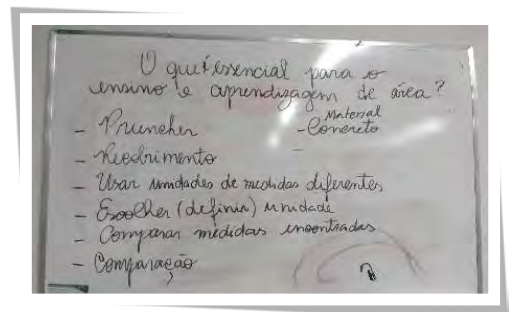 O que é essencial para o
ensino e aprendizagem de área?
- Preencher
- Material Concreto
- Recobrimento
-
- Usar unidades de medidas diferentes
- Escolher (definir) unidade
- Comparar medidas encontradas
- Comparação